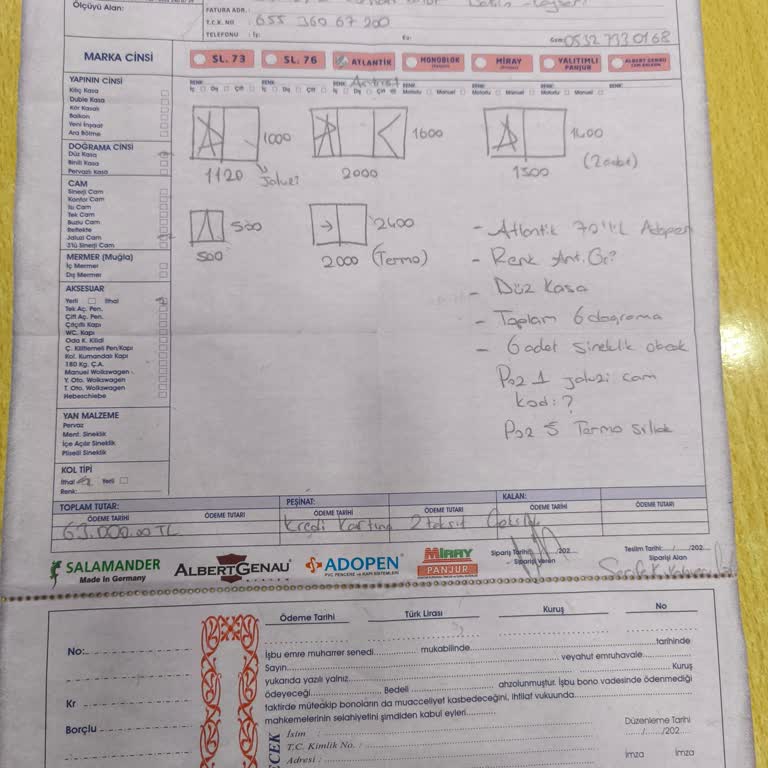 Ölçüyü Alan:
FATURA ADR. :
T.C.K. NO : 655 360 67 200
TELEFONU : İş: Ev: Gsm: 0532 733 01 68
MARKA CİNSİ
SL. 73 SL. 76 ATLANTİK MONOBLOK MİRAY YALITIMLI PANJUR ALBERT GENAU CAM BALKON
RENK: Antrasit
İç Dış Çift İç Dış Çift İç Dış Çift Motorlu Manuel Motorlu Manuel Motorlu Manuel
YAPININ CİNSİ
Kılıç Kasa
Duble Kasa
Kör Kasalı
Balkon
Yeni İnşaat
Ara Bölme
DOĞRAMA CİNSİ
Düz Kasa
Binili Kasa
Pervazlı Kasa
CAM
Sinerji Cam
Konfor Cam
Isı Cam
Tek Cam
Buzlu Cam
Reflekte
Jaluzi Cam
3'lü Sinerji Cam
MERMER (Muğla)
İç Mermer
Dış Mermer
AKSESUAR
Yerli İthal
Tek Aç. Pen.
Çift Aç. Pen.
Çıtçıtlı Kapı
WC. Kapı
Oda K. Kilidi
Ç. Kilitlemeli Pen/Kapı
Kol. Kumandalı Kapı
180 Kg. Ç.A.
Manuel Wolkswagen
Y. Oto. Wolkswagen
T. Oto. Wolkswagen
Hebeschiebe
YAN MALZEME
Pervaz
Ment. Sineklik
İçe Açılır Sineklik
Pliselli Sineklik
KOL TİPİ
İthal Yerli
Renk:
1000
1120 Jaluzi
1600
2000
1400
1500 (2 adet)
500
500
2400
2000 (Termo)
- Atlantik 70'lik Adopen
- Renk Ant.Gr?
- Düz Kasa
- Toplam 6 dograma
- 6 adet sineklik olacak
Poz 1 jaluzi cam
kod:?
Poz 5 Termo sürme
TOPLAM TUTAR: PEŞİNAT: KALAN:
ÖDEME TARİHİ ÖDEME TUTARI ÖDEME TARİHİ ÖDEME TUTARI ÖDEME TARİHİ ÖDEME TUTARI
63.000.00 TL Kredi Kartına 2 taksit
SALAMANDER
Made in Germany
ALBERTGENAU
ADOPEN
PVC PENCERE ve KAPI SİSTEMLERİ
MİRAY
PANJUR
Sipariş Tarihi: 202...
Sipariş Veren
Teslim Tarihi: ....../....../202...
Siparişi Alan
Ödeme Tarihi Türk Lirası Kuruş No
No:
Kr
Borçlu
İşbu emre muharrer senedi mukabilinde tarihinde
Sayın veyahut emruhavale
yukarıda yazılı yalnız Kuruş
ödeyeceği Bedeli ahzolunmuştur. İşbu bono vadesinde ödenmediği
taktirde müteakip bonoların da muacceliyet kasbedeceğini, ihtilaf vukuunda
mahkemelerinin selahiyetini şimdiden kabul eyleri
Düzenleme Tarihi
....../....../202...
İsim :
T.C. Kimlik No. :
Adresi :
İmza İmza